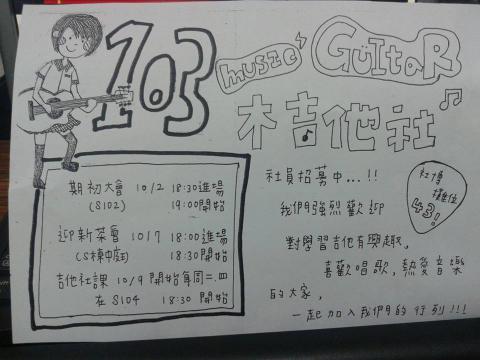 103
music
GuItaR
木吉他社
期初大會 10/2 18:30進場
(S102) 19:00開始
迎新茶會 10/7 18:00進場
(S棟中庭) 18:30開始
吉他社課 10/9開始每周二.四
在S104 18:30開始
社員招募中...!!
我們強烈歡迎
對學習吉他有興趣,
喜歡唱歌,熱愛音樂
的大家,
一起加入我們的行列!!!
社博
攤位
43!